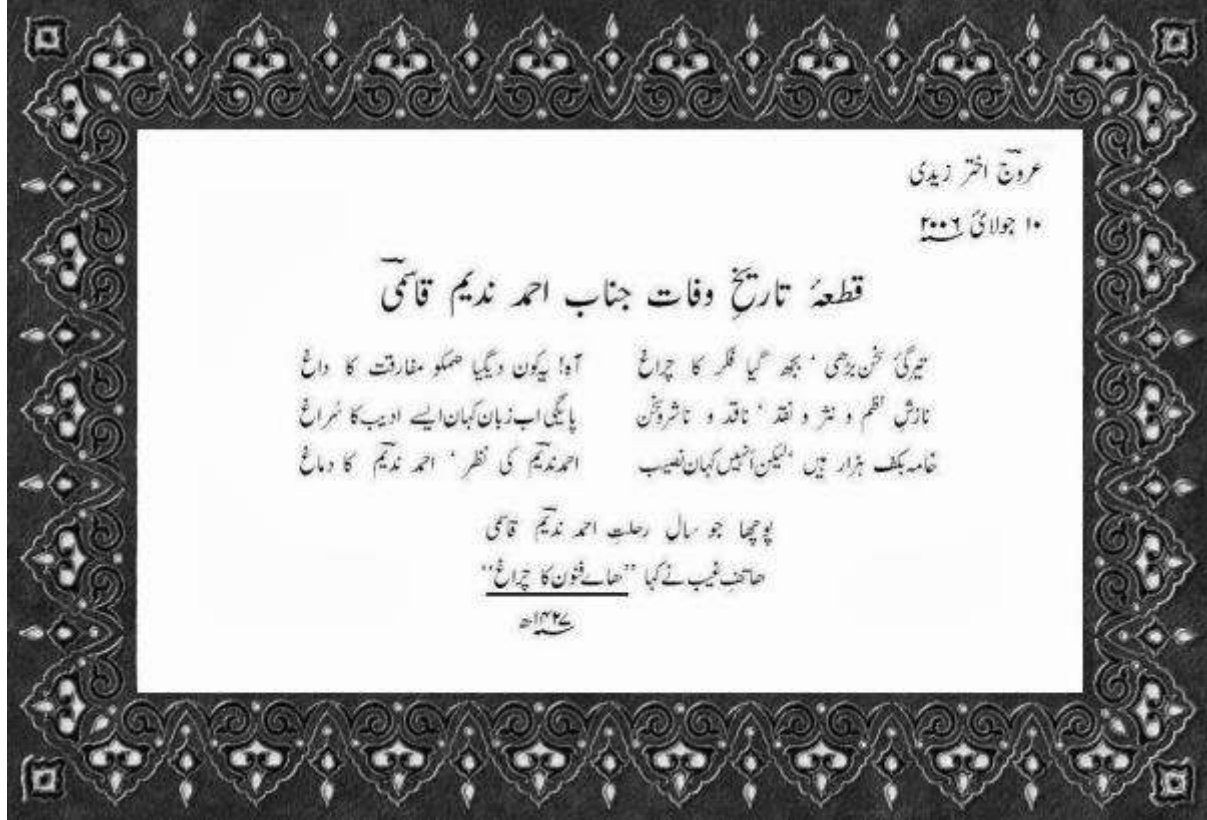 عروج اختر زیدی
۱۰ جولائ ۲۰۰۶
قطعۂ تاریخِ وفات جناب احمد ندیم قاسمی
تیرگئ سخن بڑھی ، بجھ گیا فکر کا چراغ آہ! یہ کون دیگیا ھمکو مفارقت کا داغ
نازشِ نظم و نثر و نقد ، ناقد و ناشرِ سخن پائیگی اب زبان کہان ایسے ادیب کا سُراغ
خامہ بکف ہزار ہیں ، لیکن اُنہیں کہان نصیب احمد ندیم کی نظر ، احمد ندیم کا دماغ
پوچھا جو سالِ رحلتِ احمد ندیم قاسمی
ھاتفِ غیب نے کہا ”ھاے فنون کا چراغ“
۱۴۲۷ھ